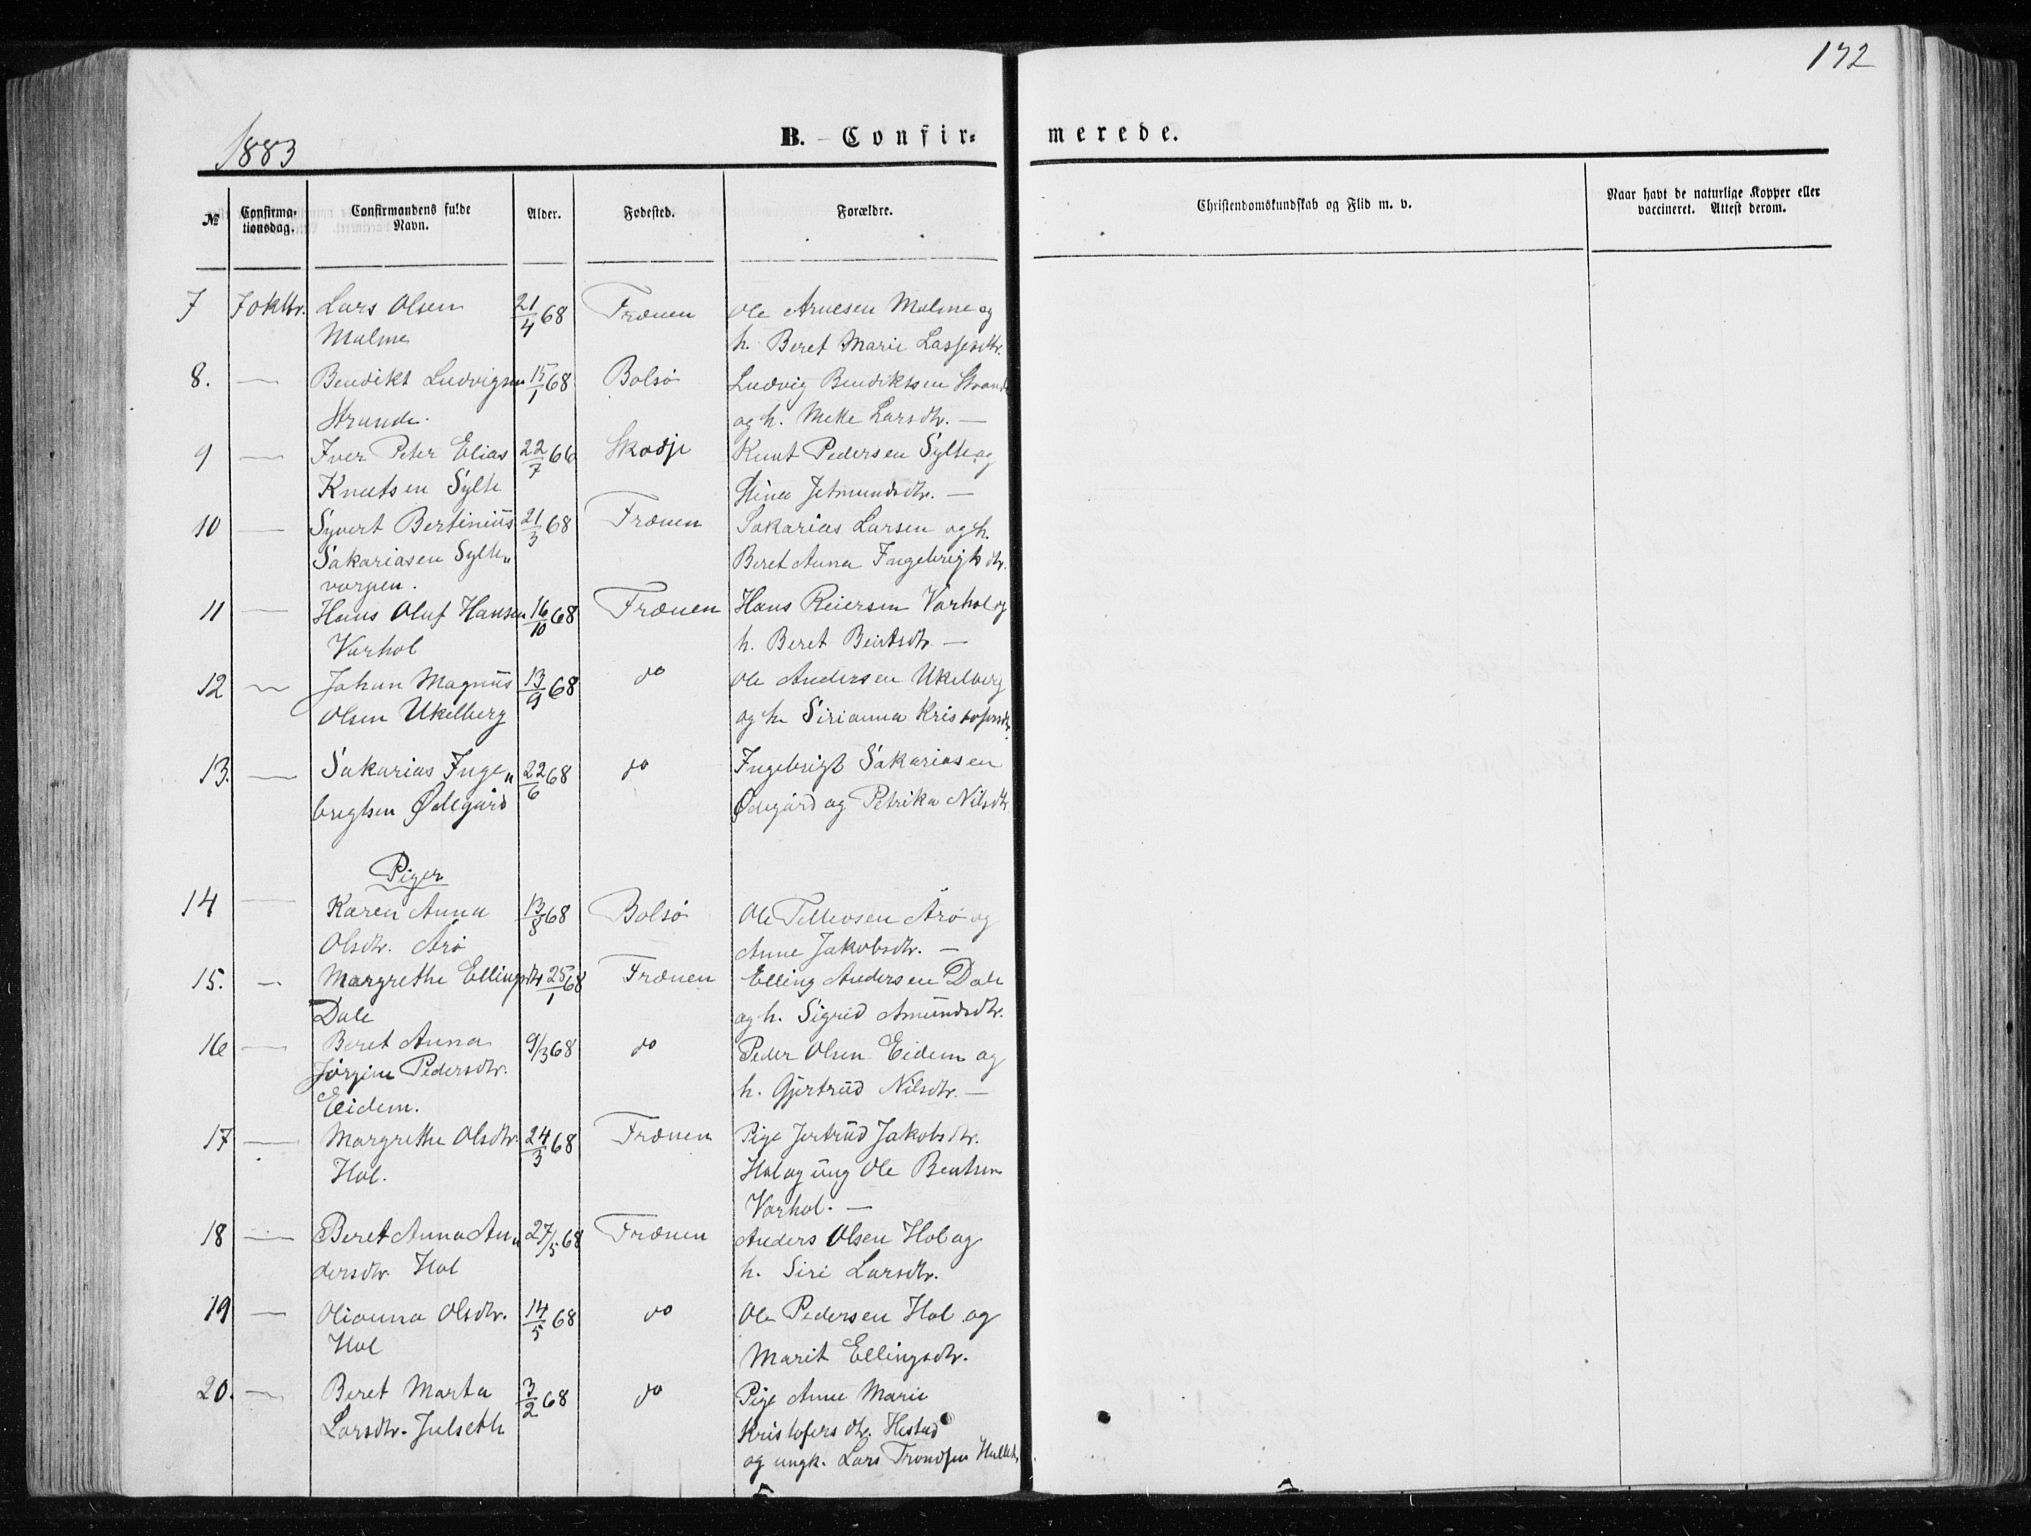 172
1883
B. Confirmerede.
№
Confirmationsdag.
Confirmandens fulde Navn.
Alder.
Fødested.
Forældre.
Christendomskundskab og Flid m. v.
Naar havt de naturlige Kopper eller vaccineret. Attest derom.
7 7 oktbr. Lars Olsen 21/4 68 Frænen Ole Arnesen Malme og
Malme h. Beret Marie Lassesdtr.
8. — Bendikt Ludvigsen 15/1 68 Bolsø Ludvig Bendiktsen Strande
Strande. og h. Mette Larsdtr. —
9 — Iver Peter Elias 22/7 66 Skodje Knut Pedersen Sylte og
Knutsen Sylte Stina Jetmundsdtr. —
10 — Syvert Bertinius 21/3 68 Frænen Sakarias Larsen og h.
Sakariasen Sylte„ Beret Anna Ingebrigtsdtr.
vorpen.
11 — Hans Oluf Hansen 16/10 68 Frænen Hans Reiersen Varhol og
Varhol h. Beret Bentsdtr. —
12 — Johan Magnus 13/9 68 do Ole Andersen Ukelberg
Olsen Ukelberg og h. Sirianna Kristofersdtr.
13. — Sakarias Inge„ 22/6 68 do Ingebrigt Sakariasen
brigtsen Ødegård Ødegård og Petrika Nilsdtr.
Piger
14 — Karen Anna 13/8 68 Bolsø Ole Tellevsen Årø og
Olsdtr. Årø Anne Jakobsdtr. —
15. — Margrethe Ellingsdtr 25/1 68 Frænen Elling Andersen Dale
Dale og h. Sigrid Amundsdtr.
16 — Beret Anna 9/3 68 do Peder Olsen Eidem og
Jørgine Pedersdtr. h. Gjertrud Nilsdtr. —
Eidem.
17 — Margrethe Olsdtr. 24/3 68 Frænen Pige Jertrud Jakobsdtr.
Hol. Hol og ung Ole Bentsen
Varhol. —
18 — Beret Anna An„ 27/5 68 Frænen Anders Olsen Hol og
dersdtr. Hol h. Siri Larsdtr.
19 — Olianna Olsdtr. 14/5 68 do Ole Pedersen Hol og
Hol Marit Ellingsdtr.
20. — Beret Marta 3/2 68 do Pige Anne Marie
Larsdtr. Julseth Kristofersdtr. Hestad
og ungk. Lars Trondsen